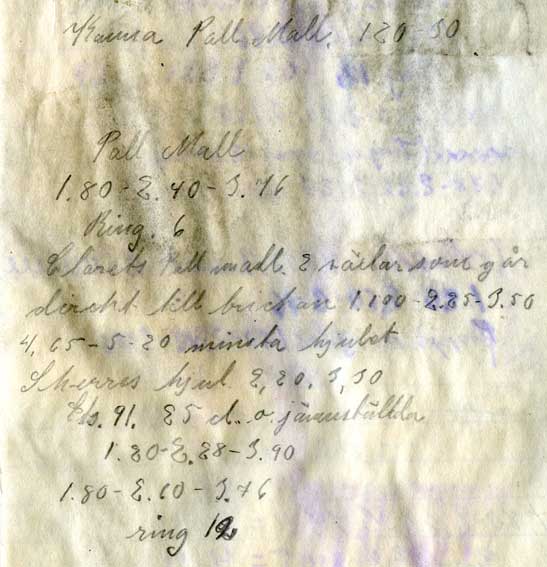 Pall Mall. 120-50
Pall Mall
1.80-2.40-3.76
Ring. 6
Clarets Pall mall. 2 som går
direkt till 1.100-2.25-3.50
4,65-5-20 minsta hjulet
hjul 2,20.3,30
91. 25 d. o. jämnställda
1.20-2.28-3.90
1.80-2.60-3.76
ring 12